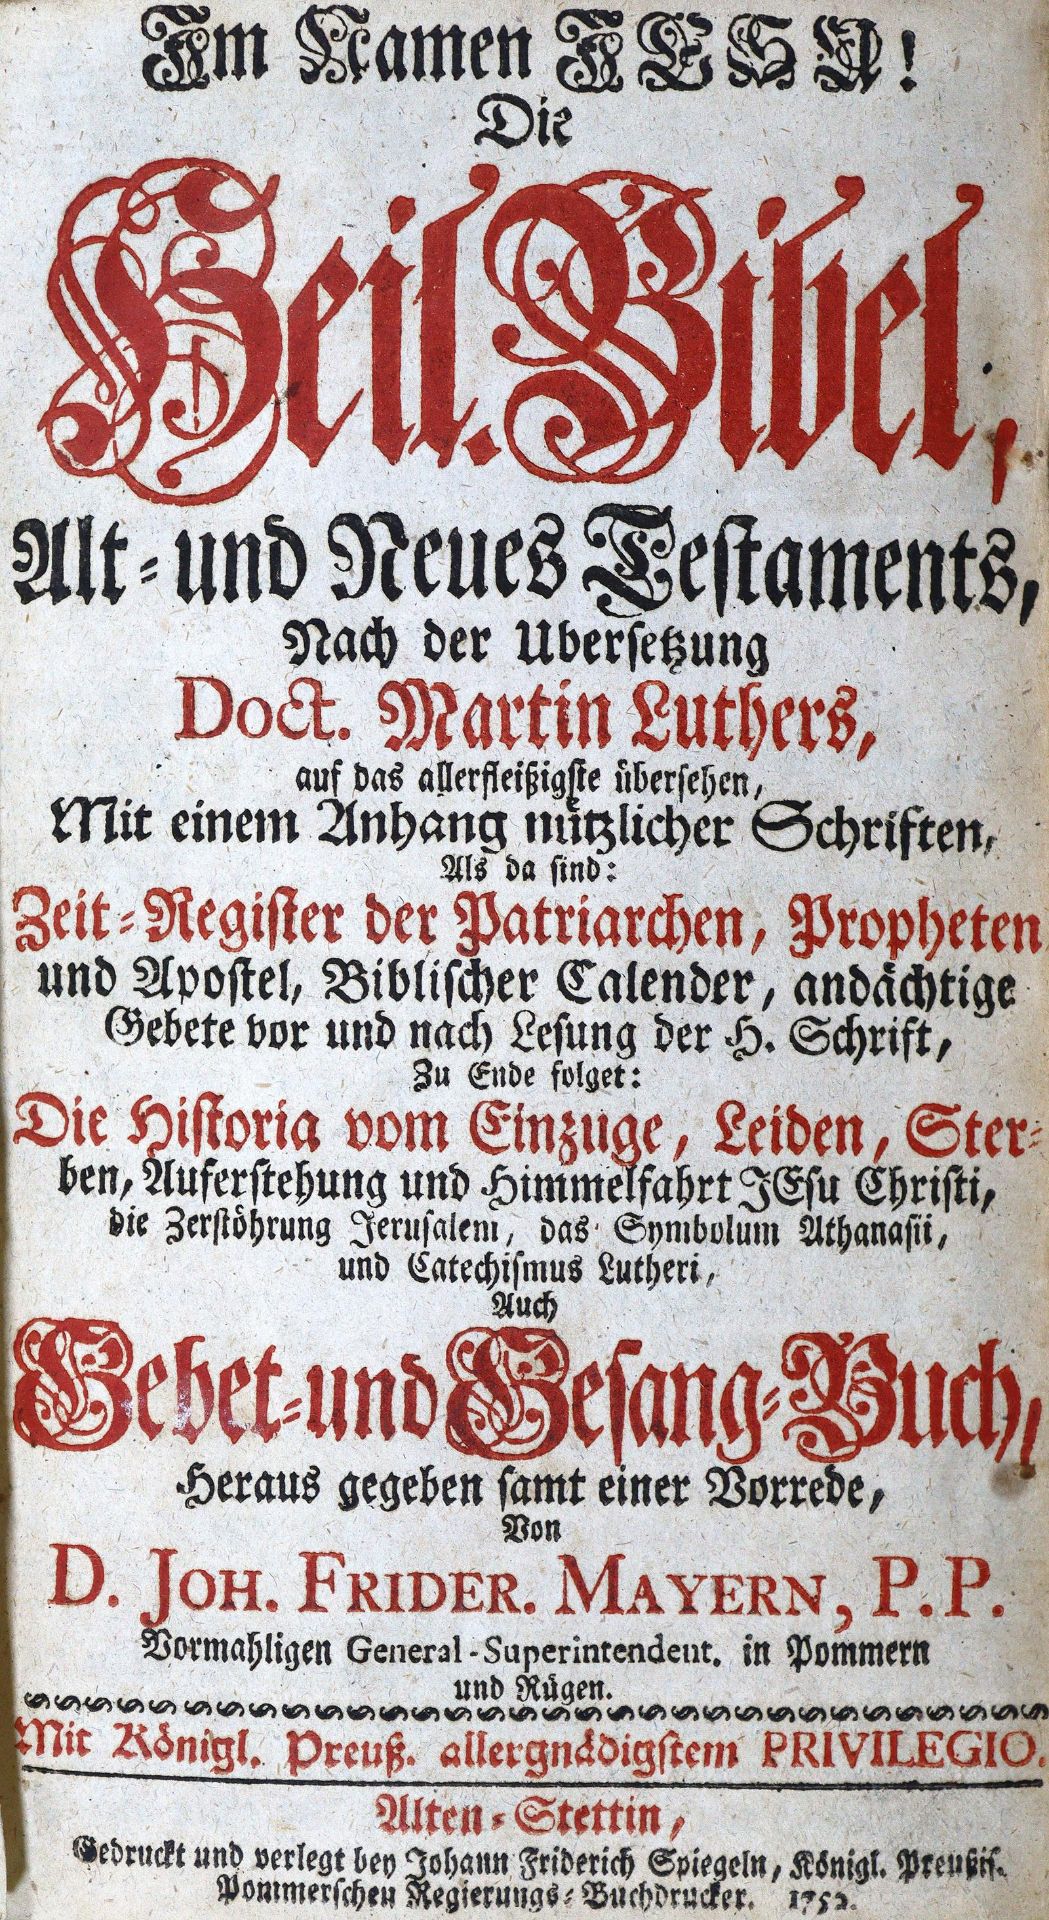 Im Namen JESU!
Die
Heil. Bibel,
Alt- und Neues Testaments,
Nach der Ubersetzung
Doct. Martin Luthers,
auf das allerfleißigste übersehen,
Mit einem Anhang nützlicher Schriften,
Als da sind:
Zeit-Register der Patriarchen, Propheten
und Apostel, Biblischer Calender, andächtige
Gebete vor und nach Lesung der H. Schrift,
Zu Ende folget:
Die Historia vom Einzuge, Leiden, Ster-
ben, Auferstehung und Himmelfahrt JEsu Christi,
die Zerstöhrung Jerusalem, das Symbolum Athanasii,
und Catechismus Lutheri,
Auch
Gebet- und Gesang-Buch,
Heraus gegeben samt einer Vorrede,
Von
D. JOH. FRIDER. MAYERN, P. P.
Vormahligen General-Superintendent. in Pommern
und Rügen.
Mit Königl. Preuß. allergnädigstem PRIVILEGIO.
Alten-Stettin,
Gedruckt und verlegt bey Johann Friderich Spiegeln, Königl. Preußis.
Pommerschen Regierungs-Buchdrucker. 1752.